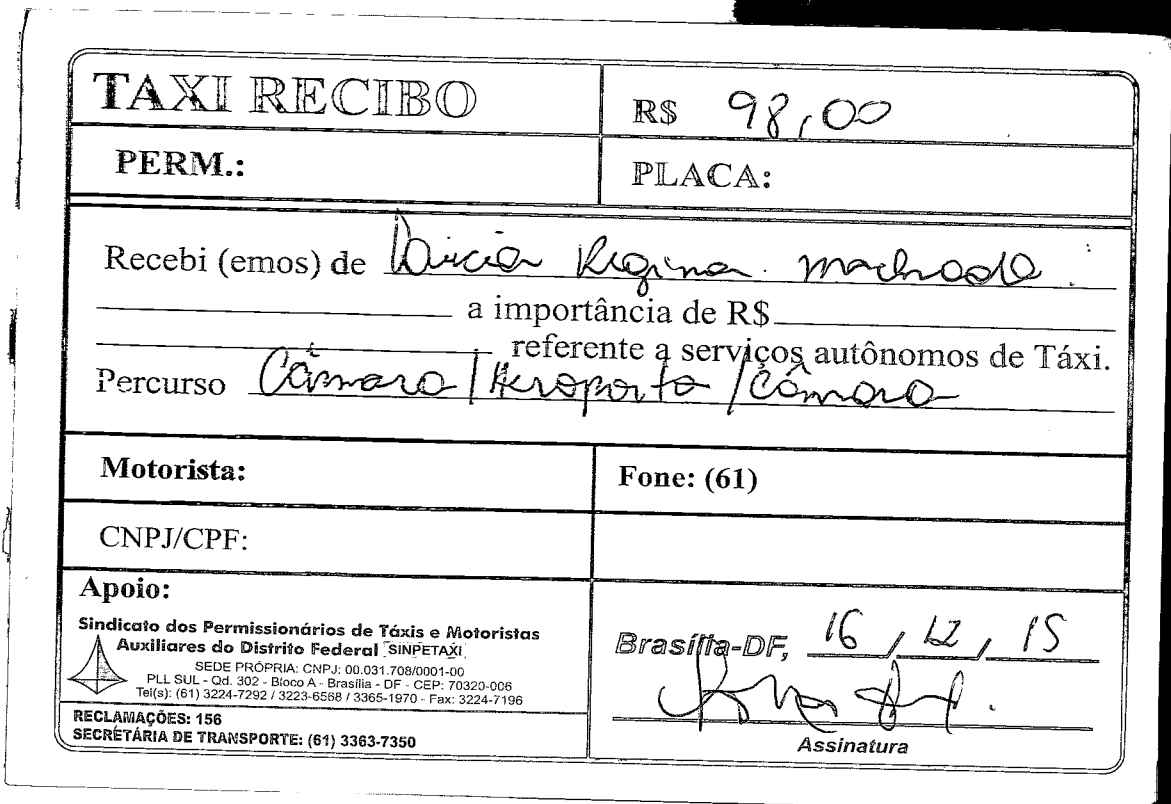 TAXI RECIBO
R$ 98,00
PERM.:
PLACA:
Recebi (emos) de Regina Machado
a importância de R$
referente a serviços autônomos de Táxi.
Percurso Câmara / Aeroporto / Câmara
Motorista:
Fone: (61)
CNPJ/CPF:
Apoio:
Sindicato dos Permissionários de Táxis e Motoristas
Auxiliares do Distrito Federal SINPETAXI
SEDE PRÓPRIA: CNPJ: 00.031.708/0001-00
PLL SUL - Qd. 302 - Bloco A - Brasília - DF - CEP: 70320-006
Tel(s): (61) 3224-7292 / 3223-6568 / 3365-1970 - Fax: 3224-7196
RECLAMAÇÕES: 156
SECRETÁRIA DE TRANSPORTE: (61) 3363-7350
Brasília-DF, 16 / 12 / 15
Assinatura